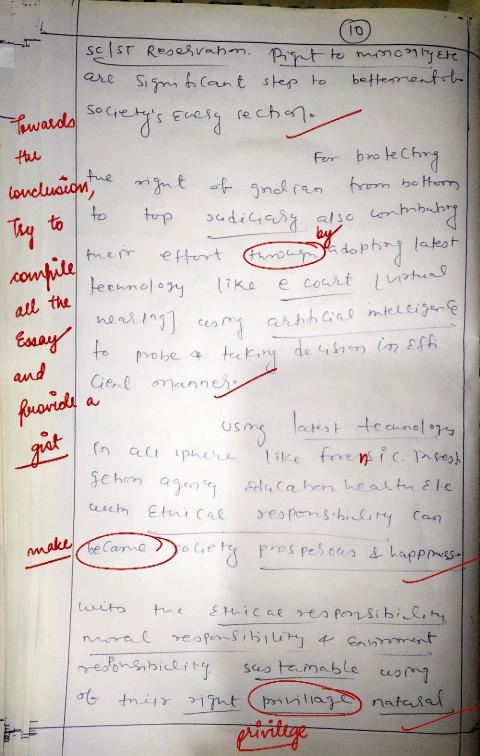 10
SC/ST Reservation. Right to minority etc
are significant step to betterment of
society's every section.
Towards
the
conclusion,
Try to
compile
all the
Essay
and
Provide a
gist
For protecting
the right of Indian from bottom
to top Judiciary also contributing
by
their effort through adopting latest
technology like e court [virtual
hearing] using artificial intelligence
to probe & taking decision in effi
cient manner.
using latest technology
in all sphere like forensic. Invest
gation agency Education health Etc
with Ethical responsibility can
make
became society prosperous & happiness.
with the Ethical responsibility
moral responsibility & Enviroment
responsibility sustainable using
of their right privillage natural
privilege